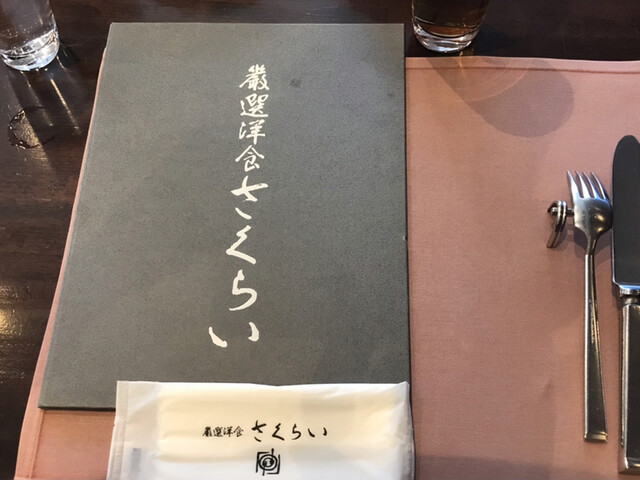 厳選洋食さくらい
厳選洋食 さくらい